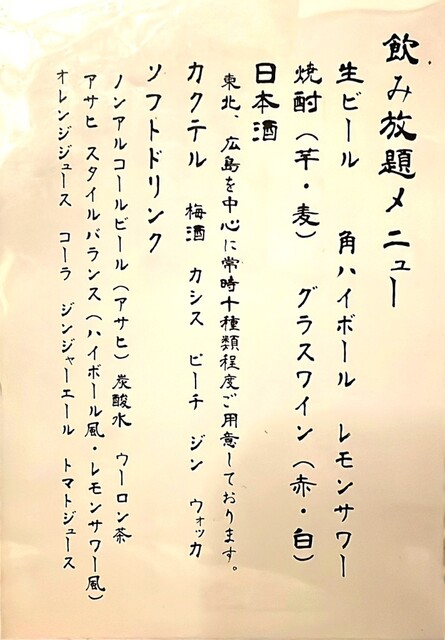 飲み放題メニュー
生ビール 角ハイボール レモンサワー
焼酎(芋・麦) グラスワイン(赤・白)
日本酒
東北、広島を中心に常時十種類程度ご用意しております。
カクテル 梅酒 カシス ピーチ ジン ウォッカ
ソフトドリンク
ノンアルコールビール(アサヒ) 炭酸水 ウーロン茶
アサヒ スタイルバランス(ハイボール風・レモンサワー風)
オレンジジュース コーラ ジンジャーエール トマトジュース